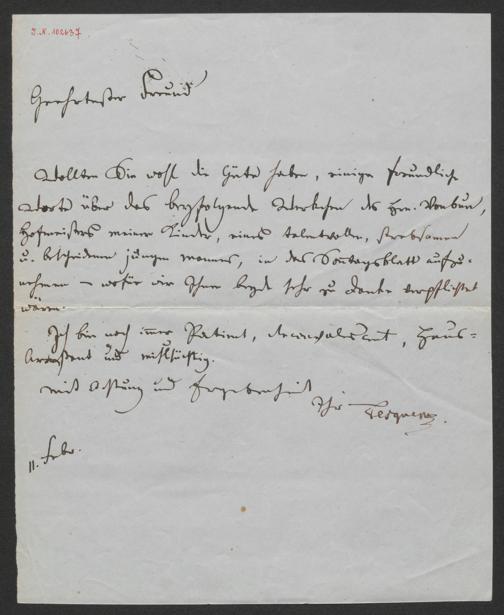 I.N. 102637
Geehrtester Freund
Wollten Sie wohl die Güte haben, einige freundliche
Worte über das beyfolgende Werkchen des Hrn. Vonbun,
Hofmeisters meiner Kinder, eines talentvollen, strebsamen
u. bescheidenen jungen Mannes, in das Sonntagsblatt aufzu-
nehmen – wofür wir Ihnen beyde sehr zu Danke verpflichtet
wären.
Ich bin noch immer Patient, Reconvalescent, Haus-
Arrestant und
mit Achtung und Ergebenheit
Ihr
11. Febr.